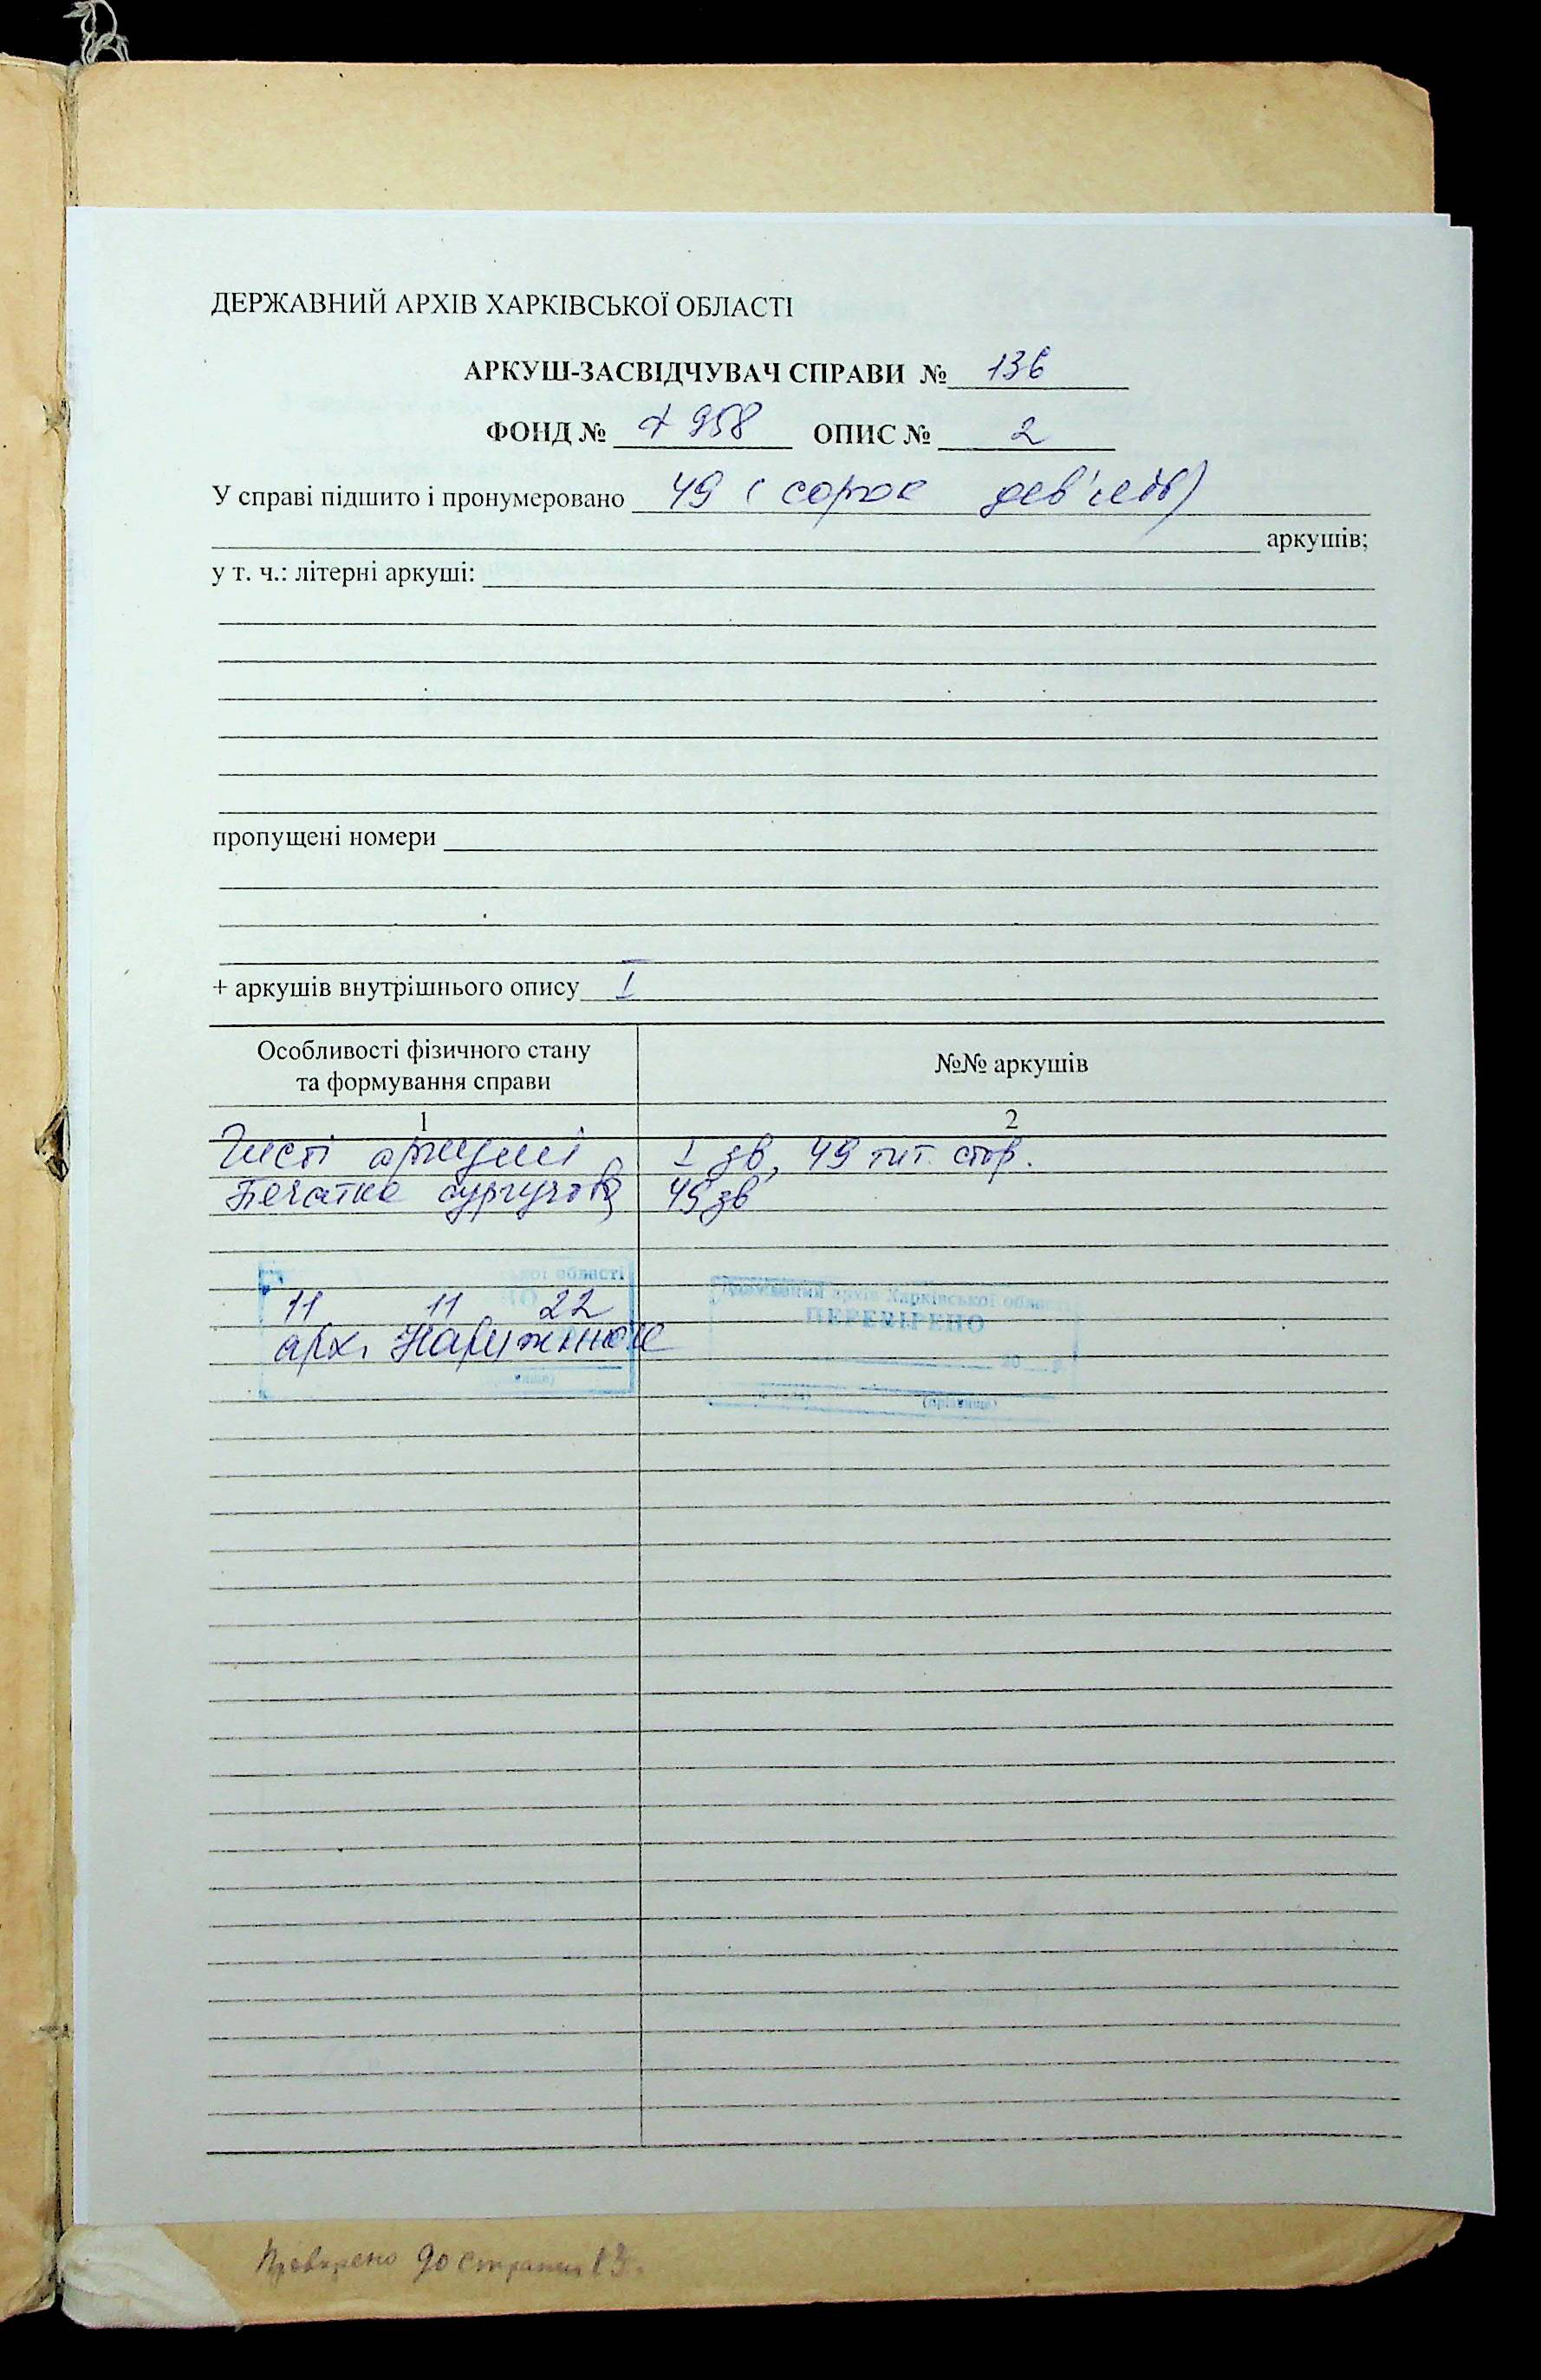 ДЕРЖАВНИЙ АРХІВ ХАРКІВСЬКОЇ ОБЛАСТІ
АРКУШ-ЗАСВІДЧУВАЧ СПРАВИ № 136
ФОНД № 958 ОПИС № 2
У справі підшито і пронумеровано 49 (сорок дев'ять)
аркушів;
у т. ч.: літерні аркуші:
пропущені номери
+ аркушів внутрішнього опису I
Особливості фізичного стану
та формування справи
№№ аркушів
1 2
Чисті аркуші I зв, 49 тит. стор.
Печатка сургучова 49 зв
ої області
11 11 22
арх.
Державний архів Харківської області
ПЕРЕВІРЕНО
20 р.
(прізвище)
до